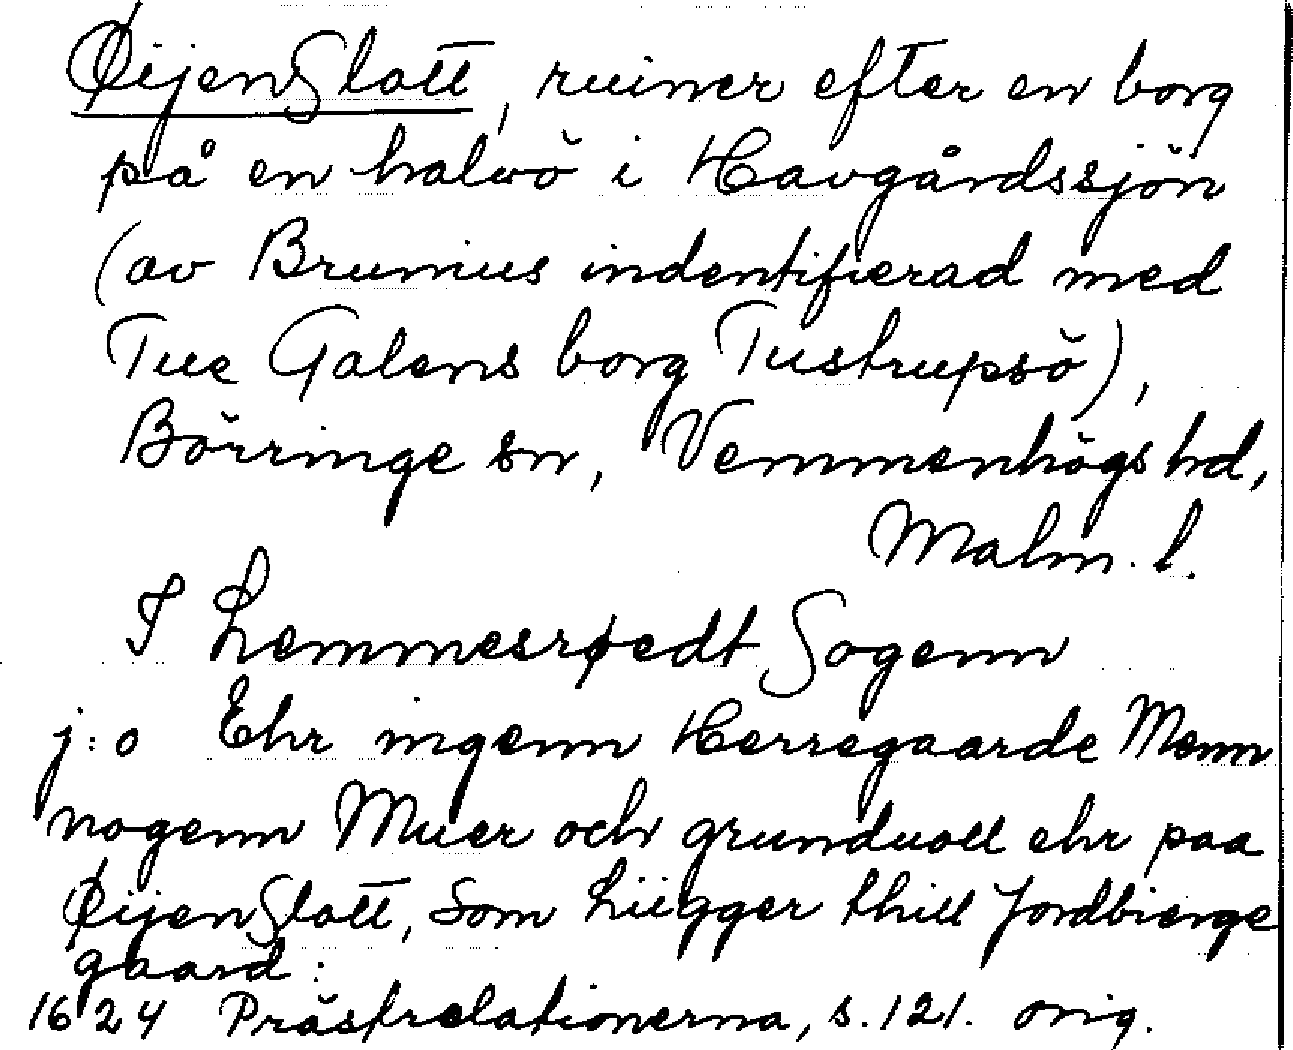 ØijenSlott, ruiner efter en borg
på en halvö i Havgårdssjön
(av Brunius indentifierad med
Tue Galens borg Tustrupsö),
Börringe sn, Vemmenhögs hd,
Malm. l.
I Lemmesrøedt Sogenn
j:o Ehr ingenn Herregaarde Menn
nogenn Muer och grunduoll ehr paa
ØijenSlott, Som Liigger thill Jordbierge
gaard:
1624 Prästrelationerna, s. 121. orig.